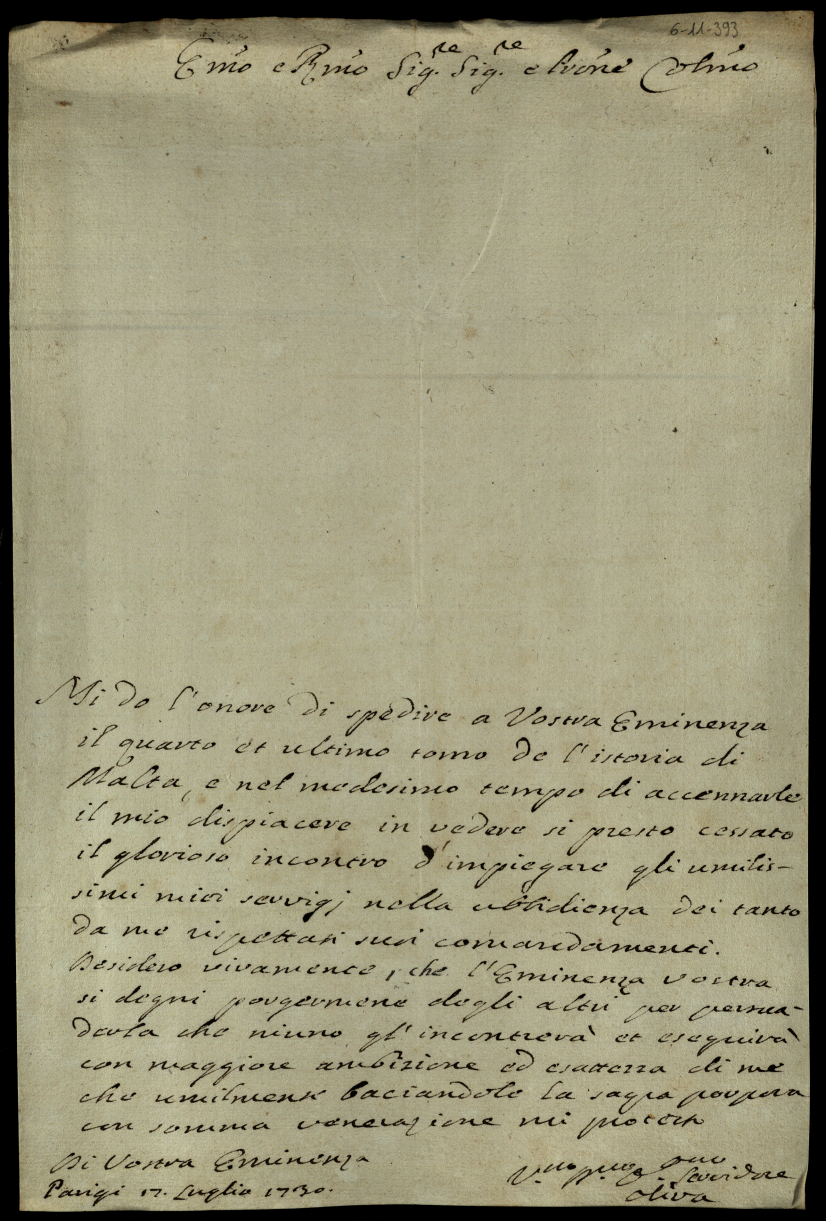 6-11-393
Emo e Rmo Sig.re Sig.re e Prone Colmo
Mi do l'onore di spedire a Vostra Eminenza
il quarto et ultimo tomo de l'istoria di
Malta, e nel medesimo tempo di accennarle
il mio dispiacere in vedere si presto cessato
il glorioso incontro d'impiegare gli umilis-
simi miei servigj nella ubbidienza dei tanto
da me rispettati suoi comandamenti.
Desidero vivamente, che l'Eminenza Vostra
si degni porgermene degli altri per persua-
derla che niuno gl'incontrerà et eseguirà
con maggiore ambizione ed esattezza di me
che umilmente baciandole la sagra porpora
con somma venerazione mi protesto
Di Vostra Eminenza
Parigi 17. Luglio 1730.
Servidore
Oliva